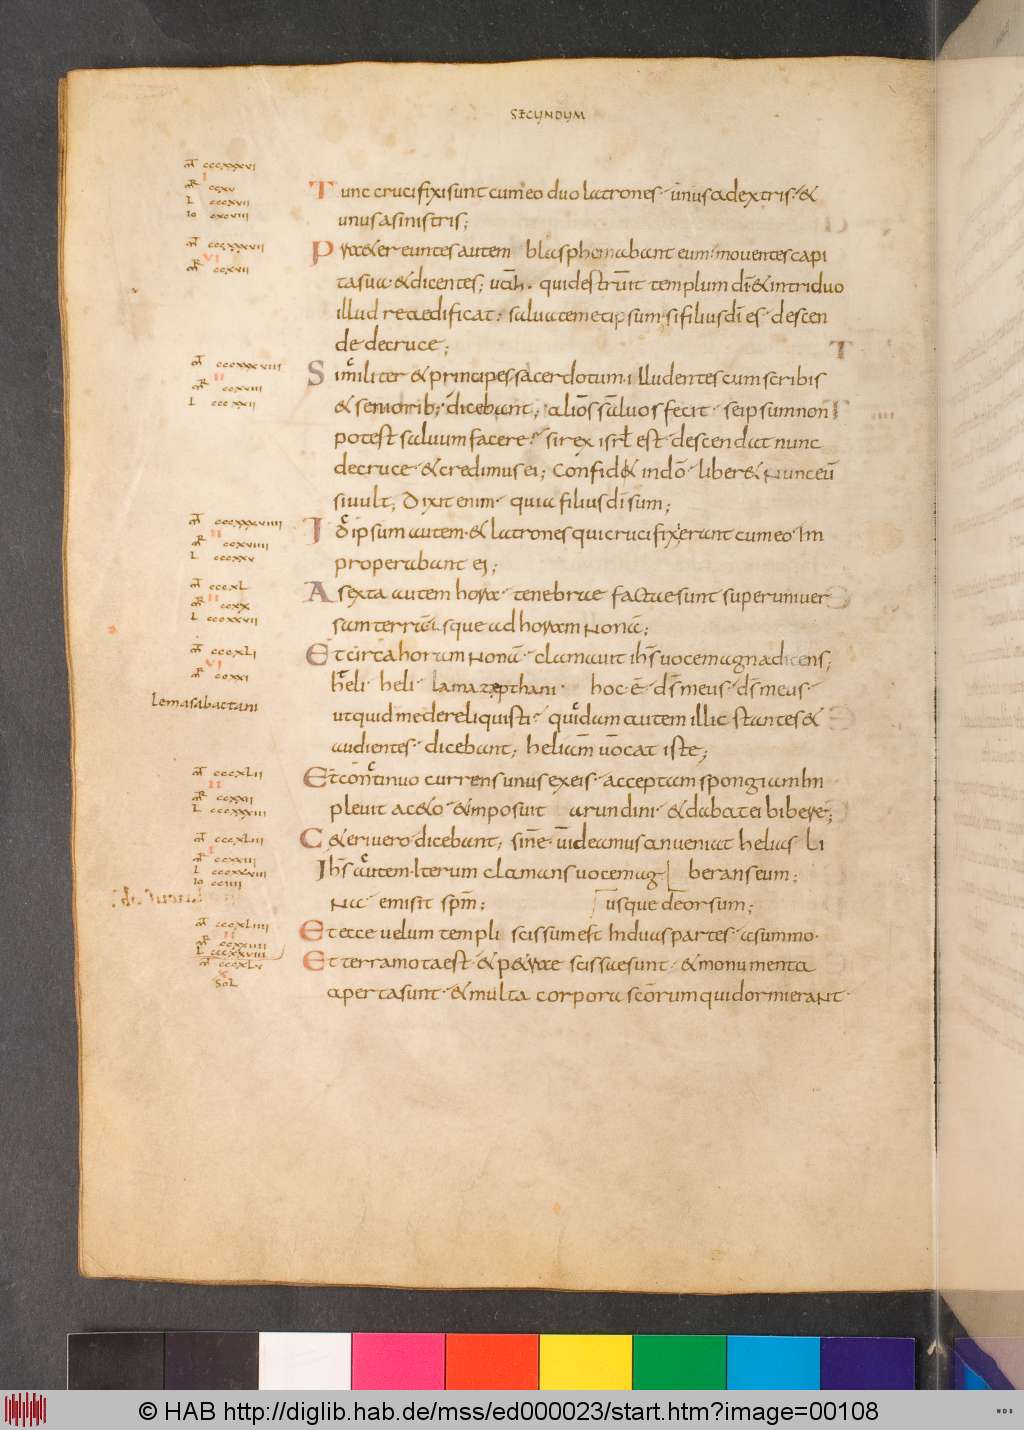 SECUNDUM
mͭ cccxxxvi
ı
mͬ ccxv
L cccxvii
Io cxcviii
Tunc crucifixisunt cum eo duo latrones · unus adextris · &
unus asinistris;
mͭ cccxxxvii
VI
mͬ ccxvii
Prae&ereuntes autem blasphemabant eum · mouentes capi
ta sua · &dicentes; uah. qui destruit templum dī & intriduo
illud reaedificat · salua temetipsum · si filius dī es · descen
de decruce;
mͭ cccxxxviii
II
mͬ ccxviii
L cccxxii
Similiter & principes sacerdotum illudentes cum scribis
& seniorib; dicebant; alios saluos fecit · seipsum non
potest saluum facere · si rex isrł est · descendat nunc
decruce · &credimus ei; Confid& indō · liber& nunc eū
si uult; Dixit enim · quia filius dī sum;
mͭ cccxxxviiii
II
mͬ ccxviiii
L cccxxv
Idipsum autem · & latrones qui crucifixi erant cum eo · Im
properabant ei;
mͭ cccXL
II
mͬ ccxx
L cccxxvii
A sexta autem hora · tenebrae factae sunt super uniuer
sam terram usque ad horam nonā;
mͭ cccXLI
VI
mͬ ccxxi
Et circa horam nonā · clamauit ihs uoce magna dicens;
Lemasabactani
heli · heli · lamazepthani · hoc · ē · ds meus · ds meus ·
utquid me dereliquisti · quidam autem illic stantes &
audientes · dicebant; heliam uocat iste;
mͭ cccXLII
II
mͬ ccxxii
L cccxxxiii
Et continuo currens unus exeis · acceptam spongiam Im
pleuit ac&o · &imposuit arundini · & dabat ei bibere;
mͭ cccXLIII
mͬ ccxxiii
L cccxxviiii
Io cciiii
C&eri uero dicebant; sine · uideamus an ueniat helias Li
Ihs autem · Iterum clamans uoce mag beranseum;
na emisit spm; usque deorsum;
mͭ cccXLiiii
II
mͬ ccxxiiii
L cccxxviii
Et ecce uelum templi scissum est Induas partes · asummo ·
mͭ cccXLv
x
SoL
Et terra mota est · &p&rae scissae sunt · & monumenta
aperta sunt · & multa corpora scōrum qui dormierant ·
© HAB http://diglib.hab.de/mss/ed000023/start.htm?image=00108